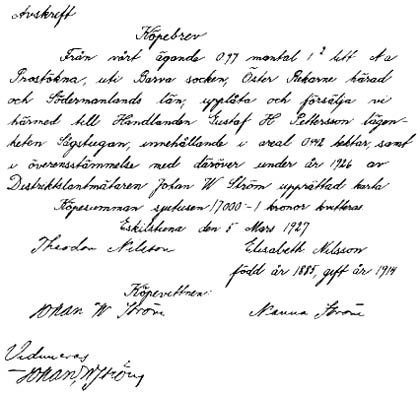 Avskrift
Köpebrev
Från vårt ägande 0,97 mantal 1² litt Aa
Prostökna, uti Barva socken, Öster Rekarne härad
och Södermanlands län, upplåta och försälja vi
härmed till Handlanden Gustaf H Pettersson lägen-
heten Sågstugan, innehållande i areal 0,442 hektar, samt
i överensstämmelse med däröver under år 1926 av
Distriktslantmätaren Johan W Ström upprättad karta
Köpesumman sjutusen /7000-/ kronor kvitteras
Eskilstuna den 5 Mars 1927
Theodor Nilsson Elisabeth Nilsson
född år 1885, gift år 1914
Köpevittnen:
Johan W Ström Nanna Ström
Vidimeras
Johan W Ström